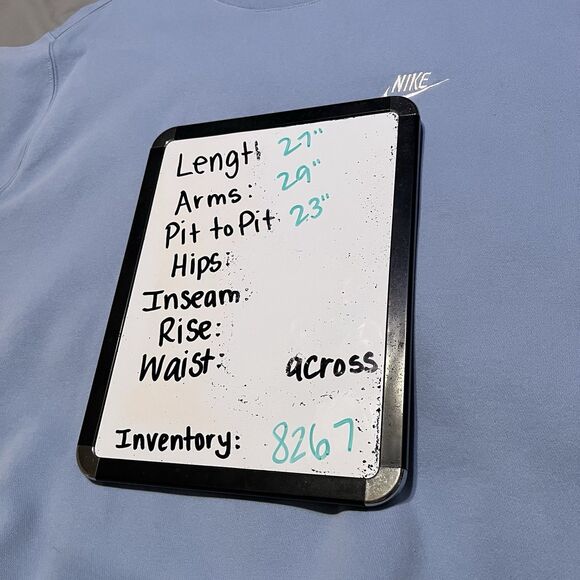 NIKE
Lengt 27"
Arms: 29"
Pit to Pit 23"
Hips:
Inseam
Rise:
Waist: across
Inventory: 8267